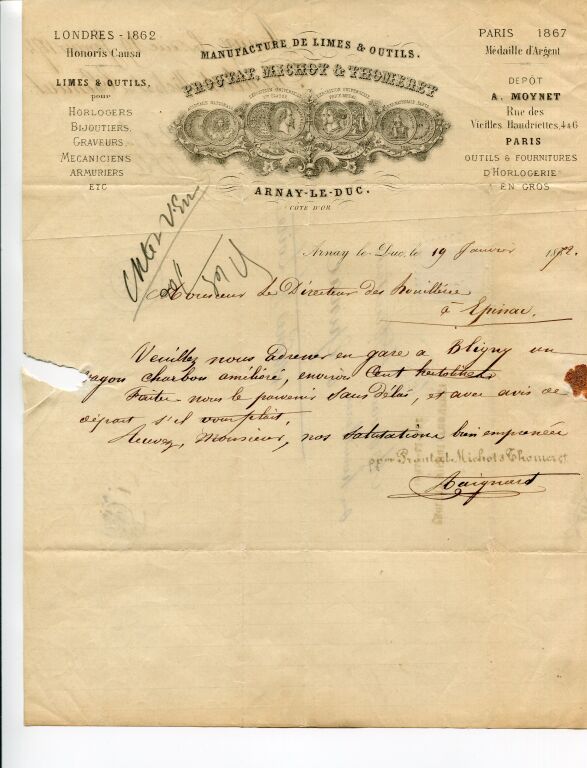 LONDRES - 1862
Honoris Causa
LIMES & OUTILS,
pour
HORLOGERS
BIJOUTIERS,
GRAVEURS
MECANICIENS
ARMURIERS
ETC
MANUFACTURE DE LIMES & OUTILS.
PROUTAT, MICHOT & THOMERET
ARNAY-LE-DUC.
COTE D'OR
PARIS 1867
Médaille d'Argent
DEPÔT
A. MOYNET
Rue des
Vieilles Haudriettes, 4&6
PARIS
OUTILS & FOURNITURES
D'HORLOGERIE
EN GROS
Arnay-le-Duc, le 19 Janvier 1872.
Monsieur le Directeur des houillères
à Epinac.
Veuillez nous adresser en gare à Bligny un
wagon charbon amélioré, environ Cent hectolitres
Faites nous le parvenir sans délai, et avec avis de
départ s'il vous plait.
Recevez, Monsieur, nos salutations bien empressées
ppon Proutat, Michot & Thomeret